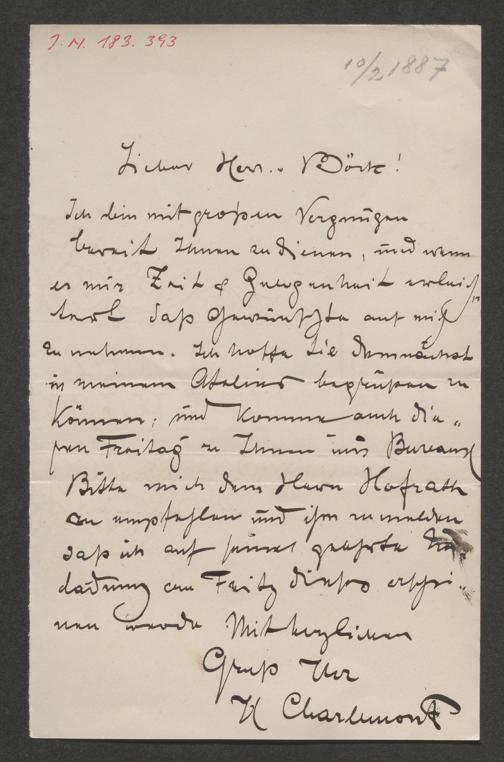 J. N. 183.393
10/2 1887
Lieber Herr Böck!
Ich bin mit großem Vergnügen
bereit Ihnen zu dienen, und wenn
es mir Zeit & Gelegenheit erleich„
tert das Gewünschte auf mich
zu nehmen. Ich hoffe Sie demnächst
in meinem Atelier begrüßen zu
können; und komme auch die„
sen Freitag zu Ihnen ins Bureau
Bitte mich dem Herrn Hofrath
zu empfehlen und ihm zu melden
daß ich auf seine geehrte Ein„
ladung am Freitg dieses erschei„
nen werde Mit herzlichem
Gruß Ihr
H Charlemont